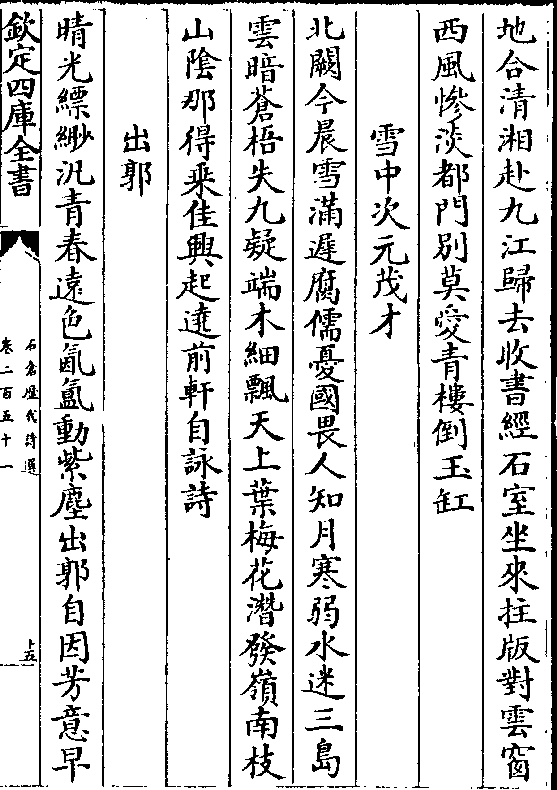 地合清湘赴九江歸去收書經石室坐來拄版對雲窗
西風慘淡都門別莫愛青樓倒玉缸
雪中次元茂才
北闕今晨雪滿遲腐儒憂國畏人知月寒弱水迷三島
雲暗蒼梧失九疑端木細飄天上葉梅花潛發嶺南枝
山陰那得乗佳興起遶前軒自詠詩
出郭
晴光縹緲汎青春遠色氤氲動紫塵出郭自因芳意早
欽定四庫全書
石倉歷代詩選
卷二百五十一
十五